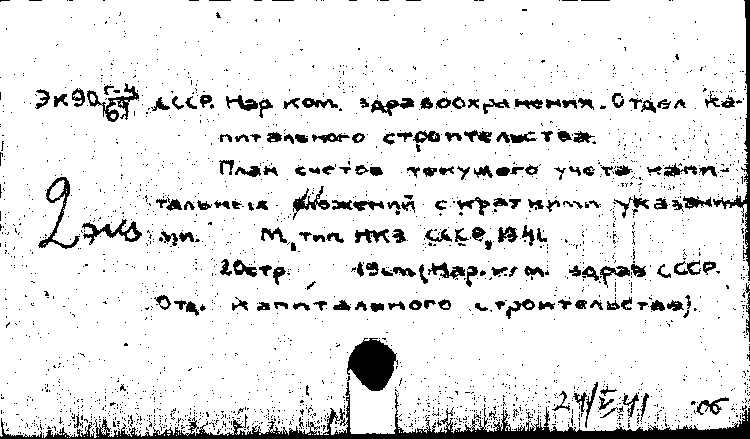 ЭК90 Г-4 СССР. Нар ком. здравоохранения. Отдел ка-
69
питального строительства.
План счетов текущего учета капи-
тальных вложений с краткими указания-
2 экз ми. М, тип НКЗ СССР, 1941
20стр. 19см (Нар. ком. здрав СССР.
Отд. капитального строительства).
24/II 41 об